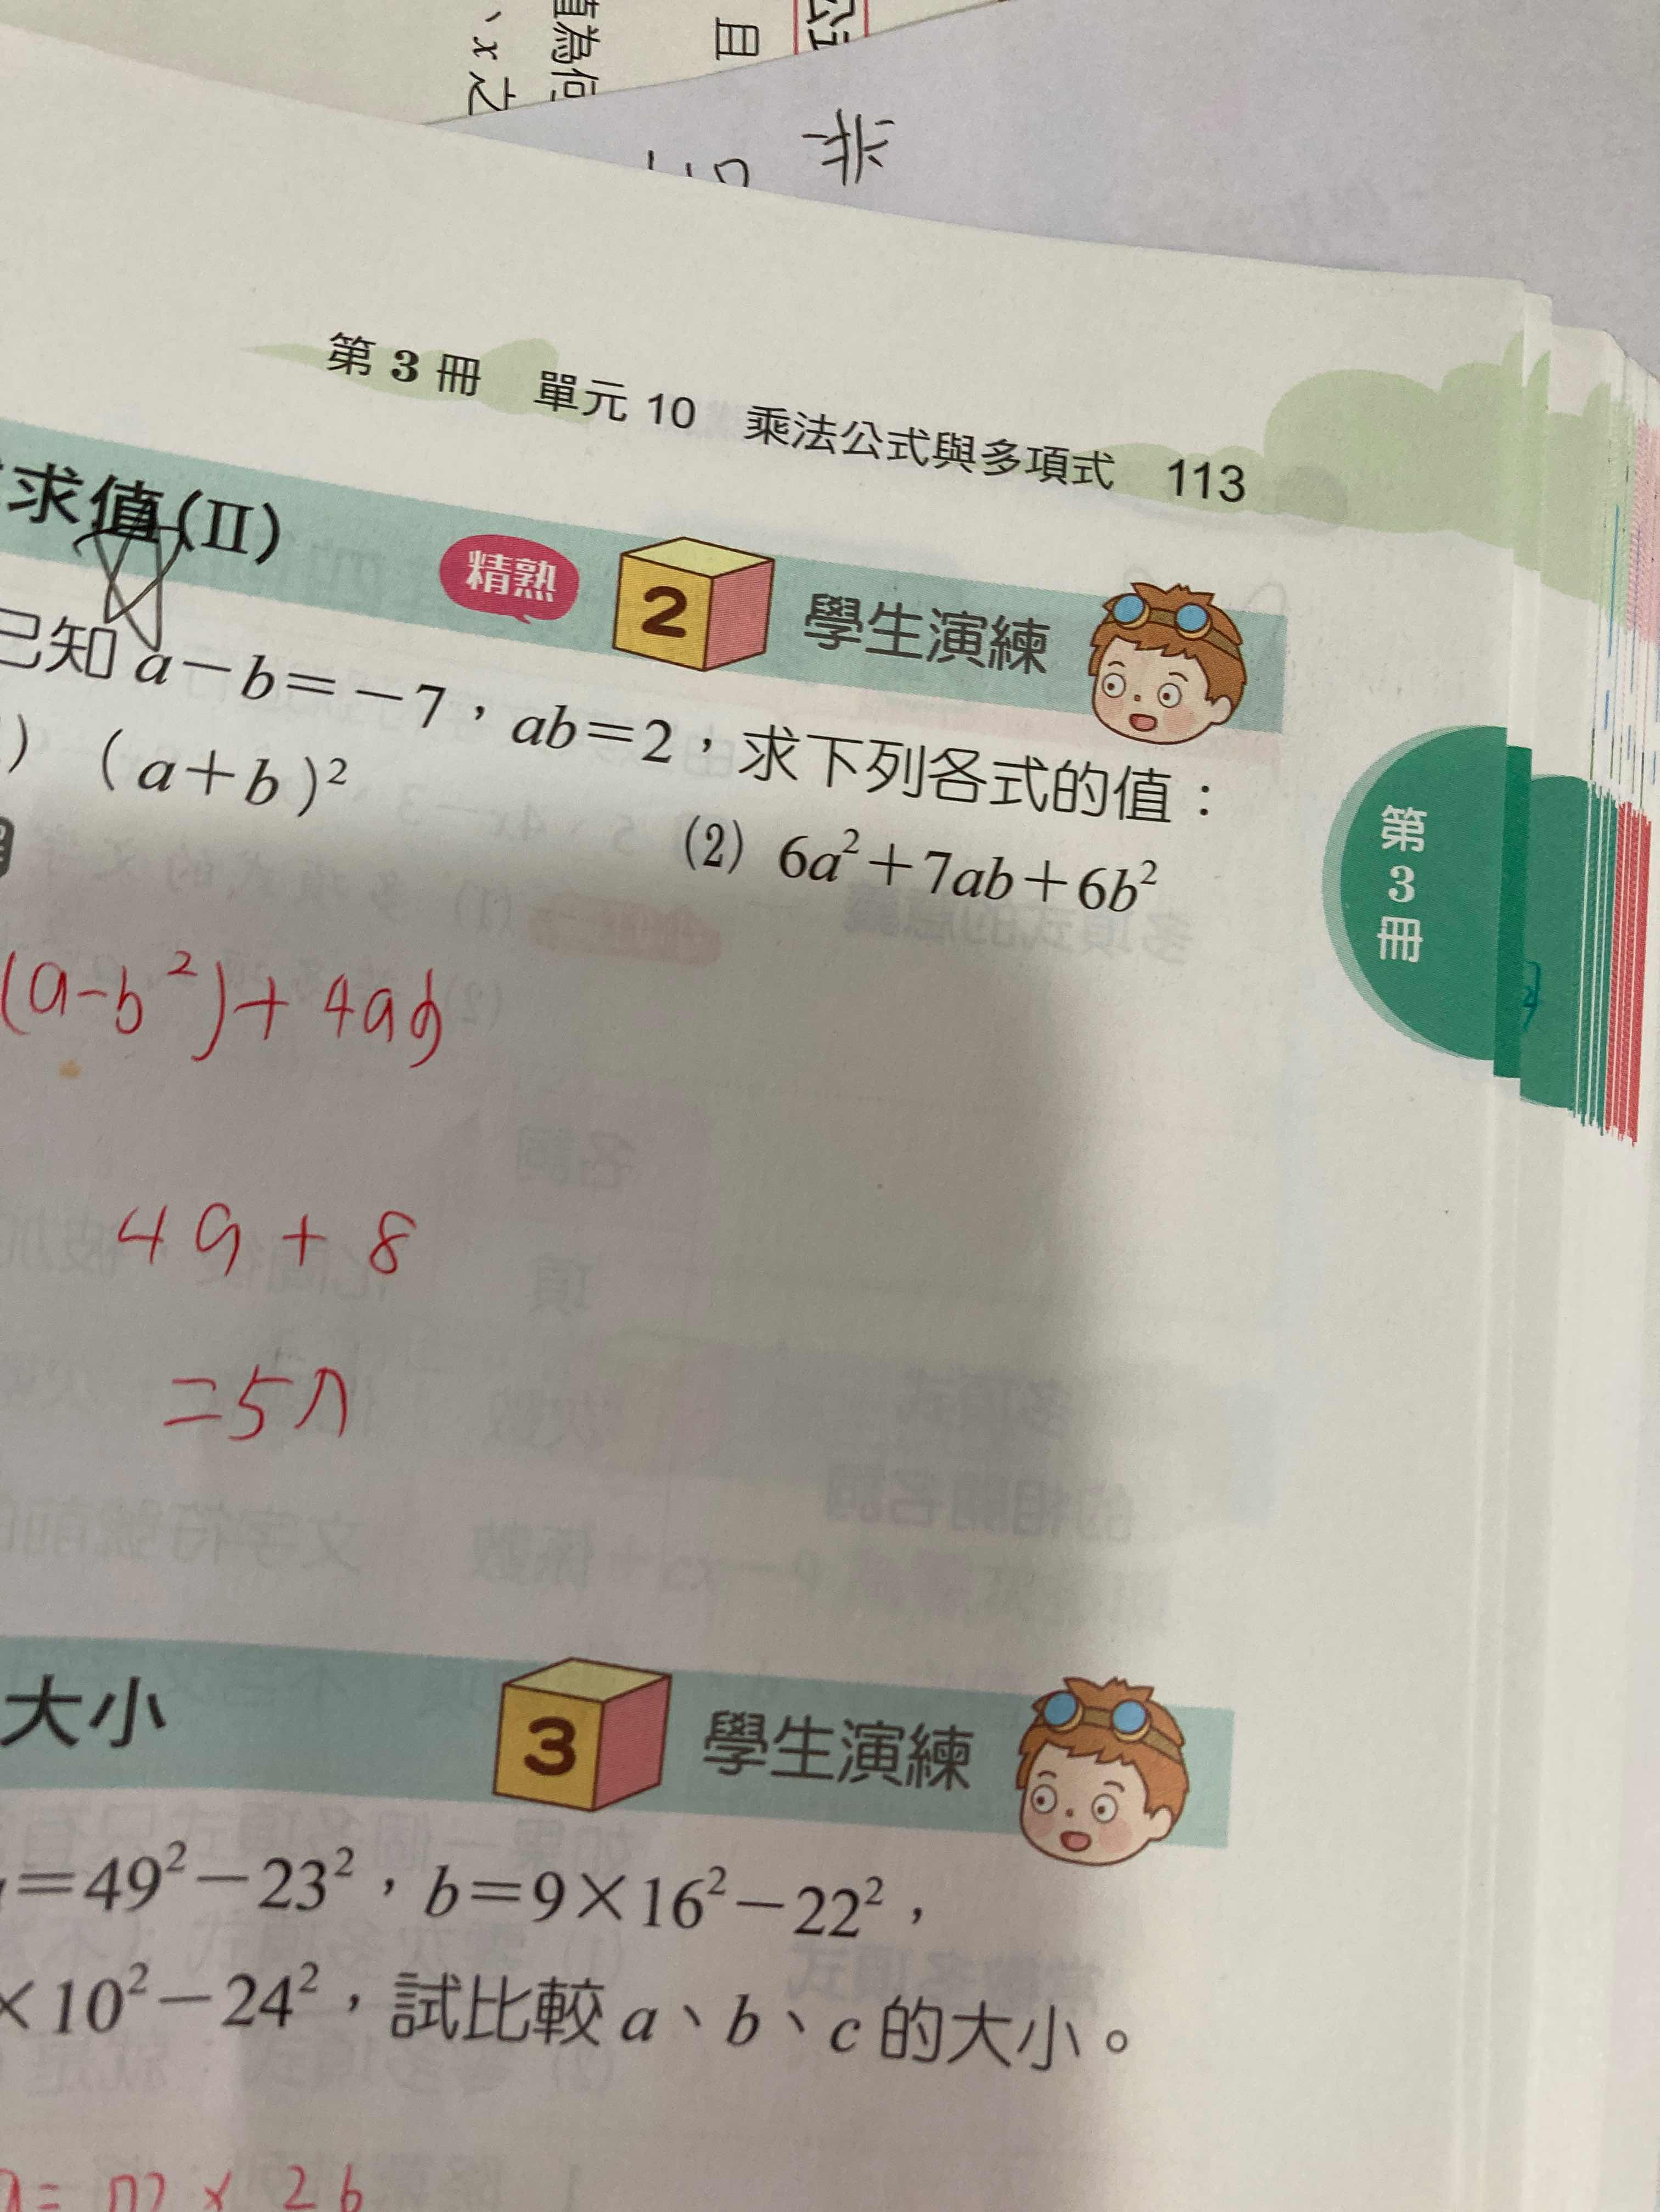 、x之
值為何
目
求
第 3 冊 單元 10 乘法公式與多項式 113
求值(II)
精熟
2 學生演練
已知 a−b=−7,ab=2,求下列各式的值:
) (a+b)²
(2) 6a²+7ab+6b²
第3冊
(a-b²)+4ab
49+8
=57
大小
3 學生演練
=49²−23²,b=9×16²−22²,
×10²−24²,試比較 a、b、c 的大小。